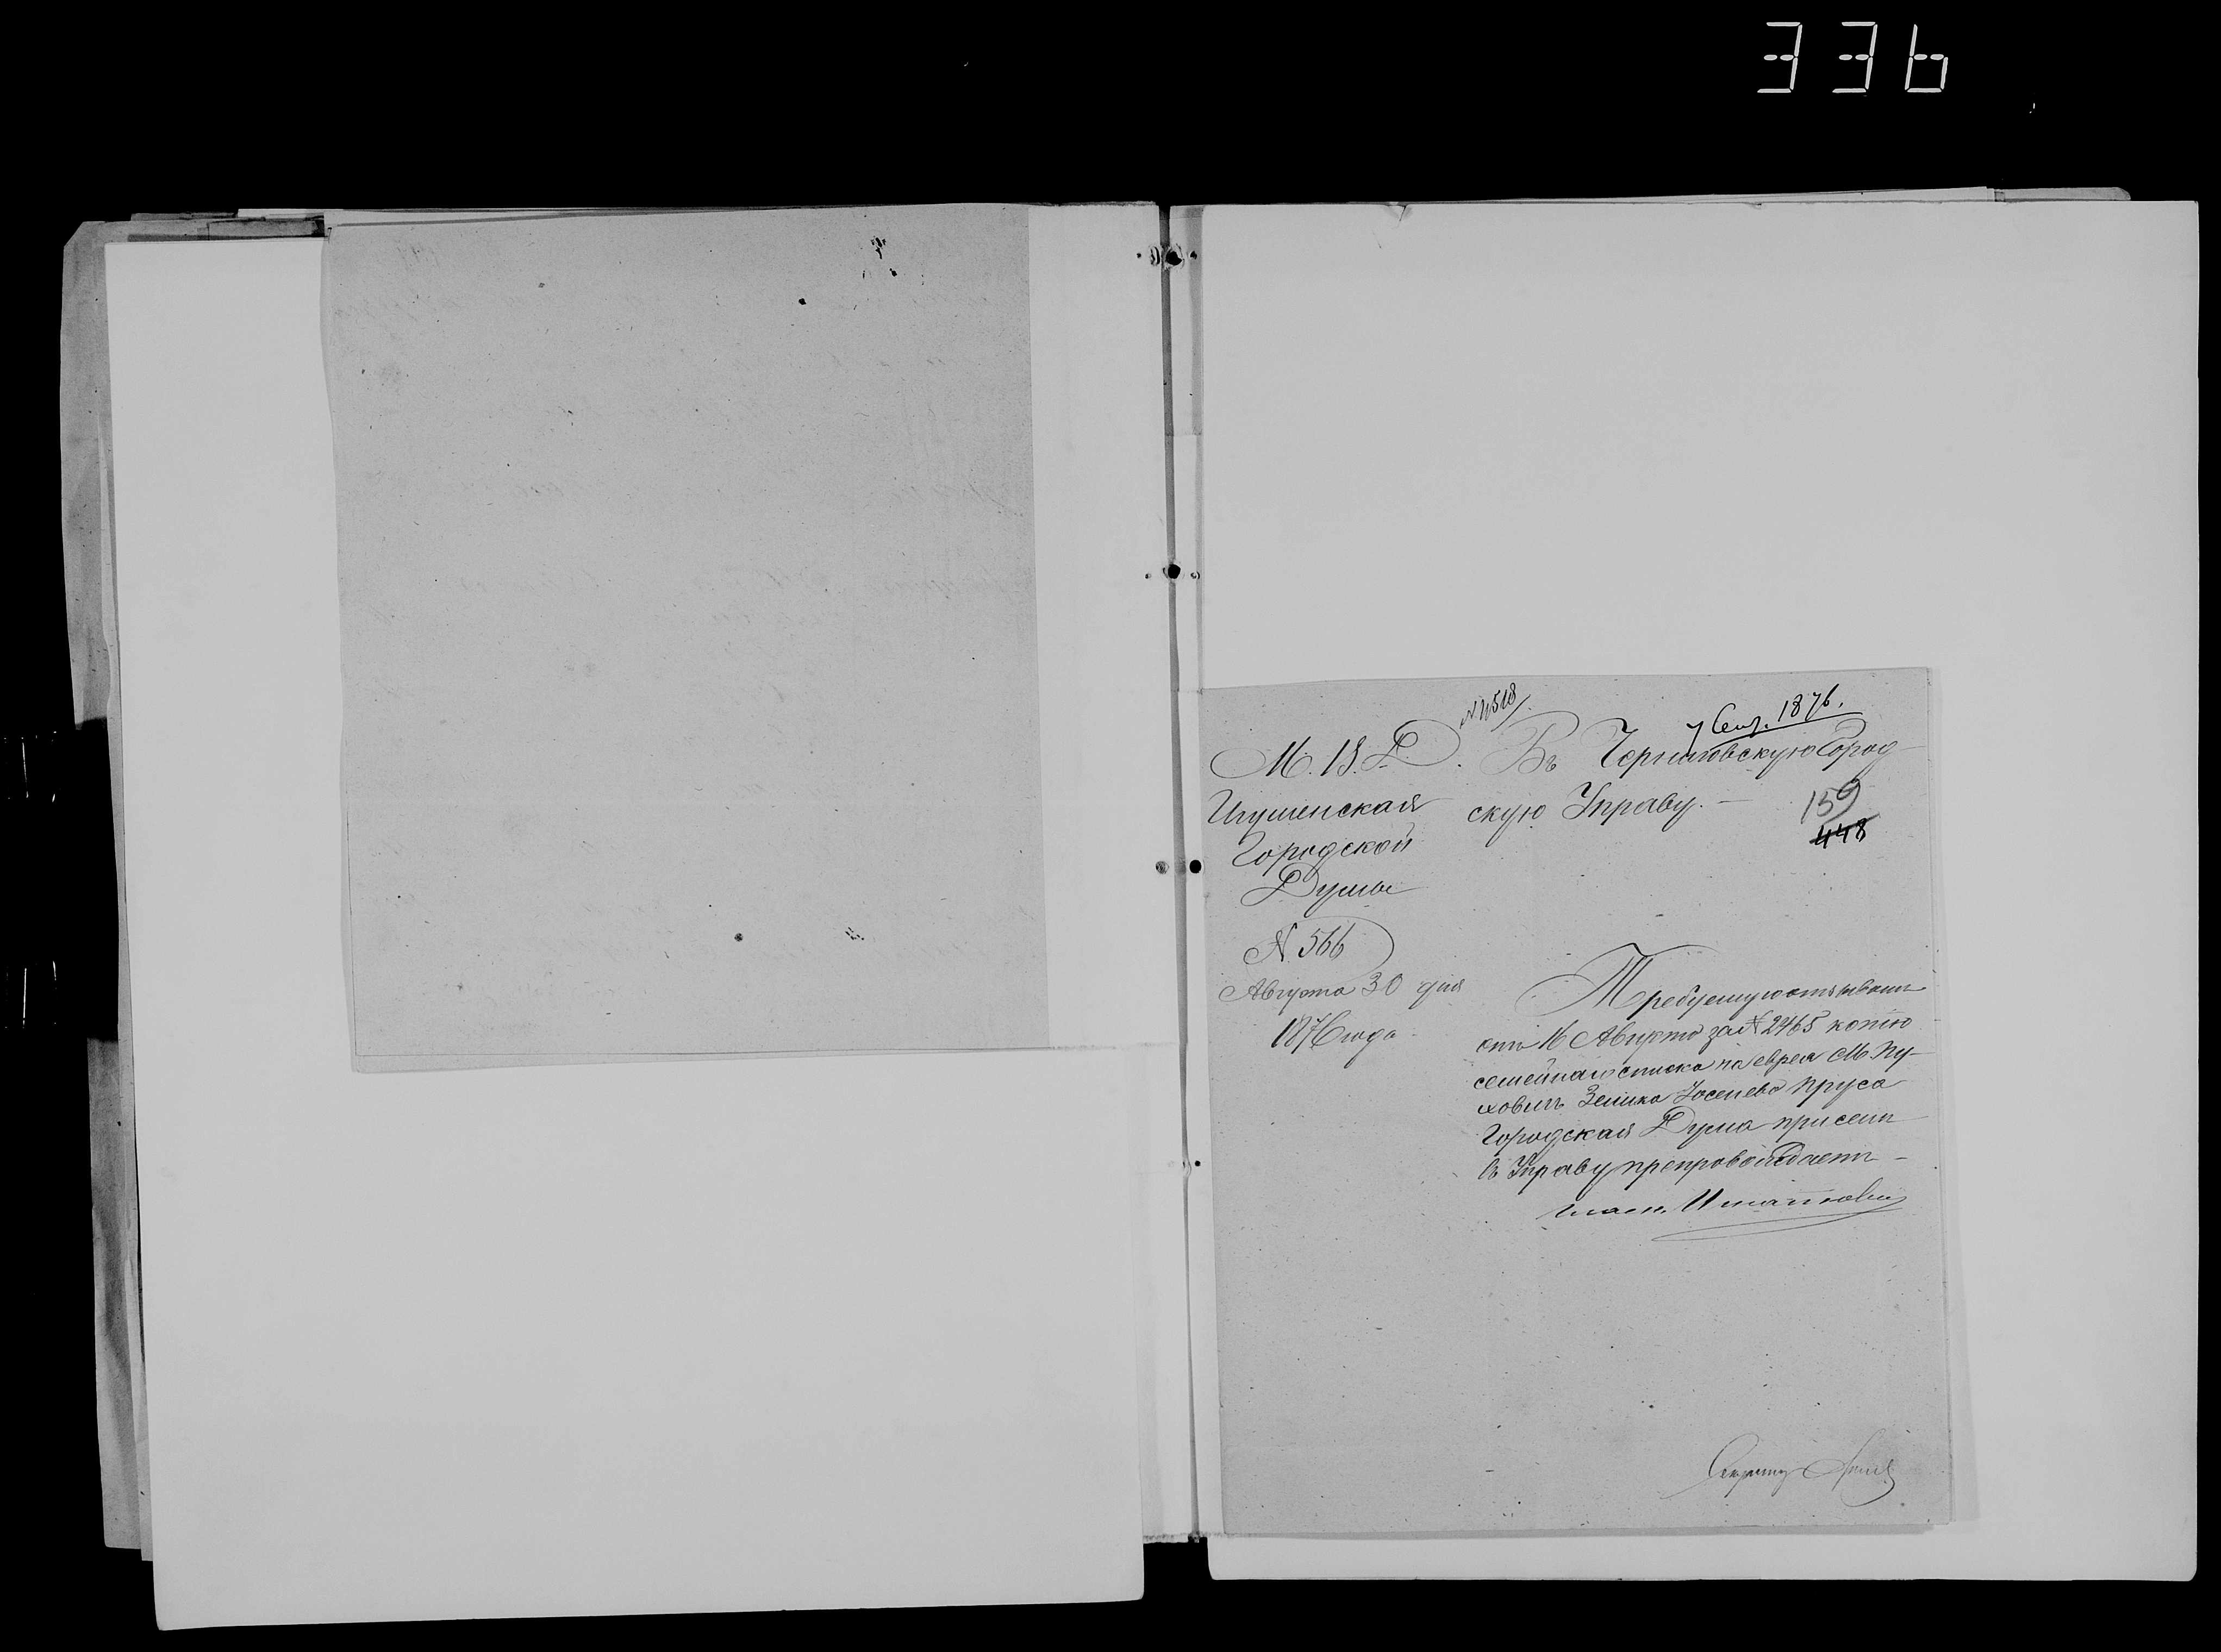 336
№ 4518
7 Сент. 1876.
М. В. Д.
Игуменская
Городской
Думы
№ 566
Августа 30 дня
1876 года
Въ Черниговскую Город
скую Управу. —
159
448
Требуемую отзывомъ
отъ 16 Августа за № 2465 копію
семейнаго списка на еврея М. Пу-
ховичъ Зелика Іоселева Пруса
Городская Дума при семъ
въ Управу препровождаетъ —
Секретарь